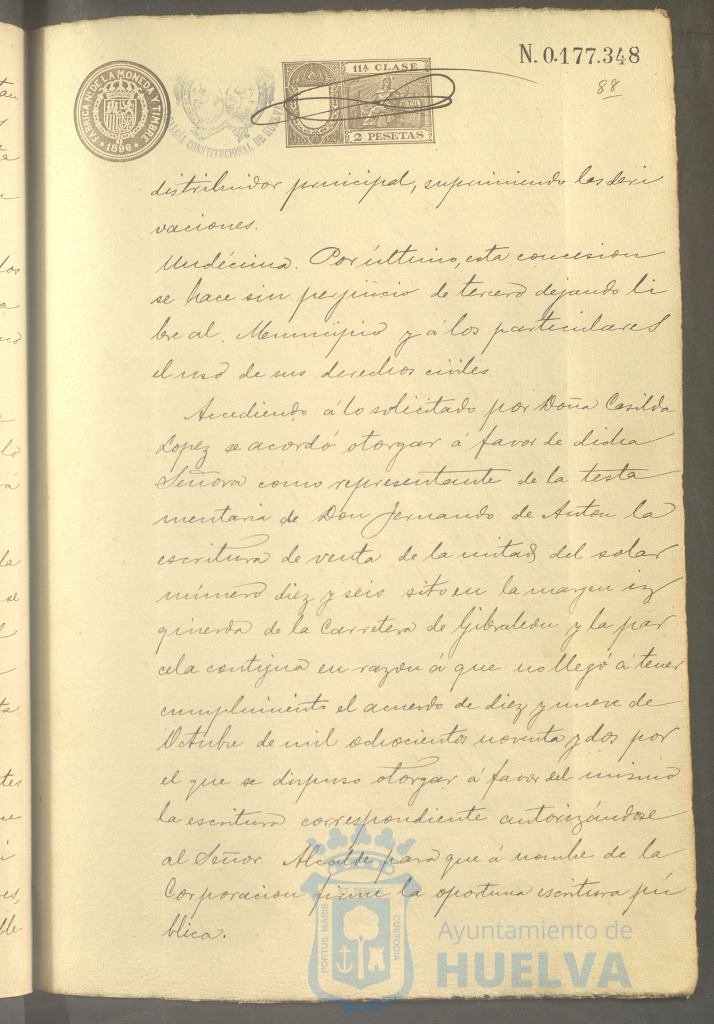 N. 0.177.348
88
FABRICA N. DE LA MONEDA Y TIMBRE
1896
ALCALDIA CONSTITUCIONAL DE HUELVA
11ª CLASE
2 PESETAS
distribuidor principal, suprimiendo las deri
vaciones.
Undécima. Por último, esta concesion
se hace sin perjuicio de tercero dejando li
bre al Municipio y á los particulares
el uso de sus derechos civiles
Accediendo á lo solicitado por Doña Casilda
Lopez se acordó otorgar á favor de dicha
Señora como representante de la testa
mentaria de Don Fernando de Anton la
escritura de venta de la mitad del solar
número diez y seis sito en la margen iz
quierda de la Carretera de Gibraleon y la par
cela contigua en razon á que no llegó á tener
cumplimiento el acuerdo de diez y nueve de
Octubre de mil ochocientos noventa y dos por
el que se dispuso otorgar á favor del mismo
la escritura correspondiente autorizándose
al Señor Alcalde para que á nombre de la
Corporacion firme la oportuna escritura pú
blica.
PORTUS MARIS ET TERRE CUSTODIA
Ayuntamiento de
HUELVA